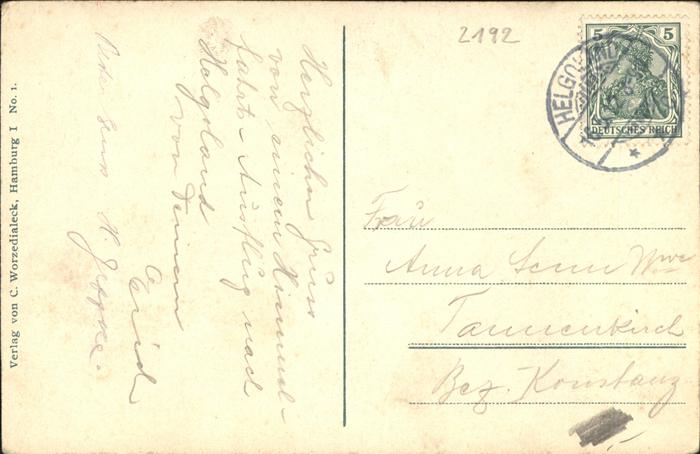 Verlag von C. Worzedialeck, Hamburg I No. 1.
Herzlichen Gruss
von einem Himmel-
fahrt-Ausflug nach
Helgoland
von Deinem
Emil
Gruss H.
2192
5 5
DEUTSCHES REICH
HELGOLAND
Frau
Anna Senn Wwe
Tannenkirch
Bez. Konstanz